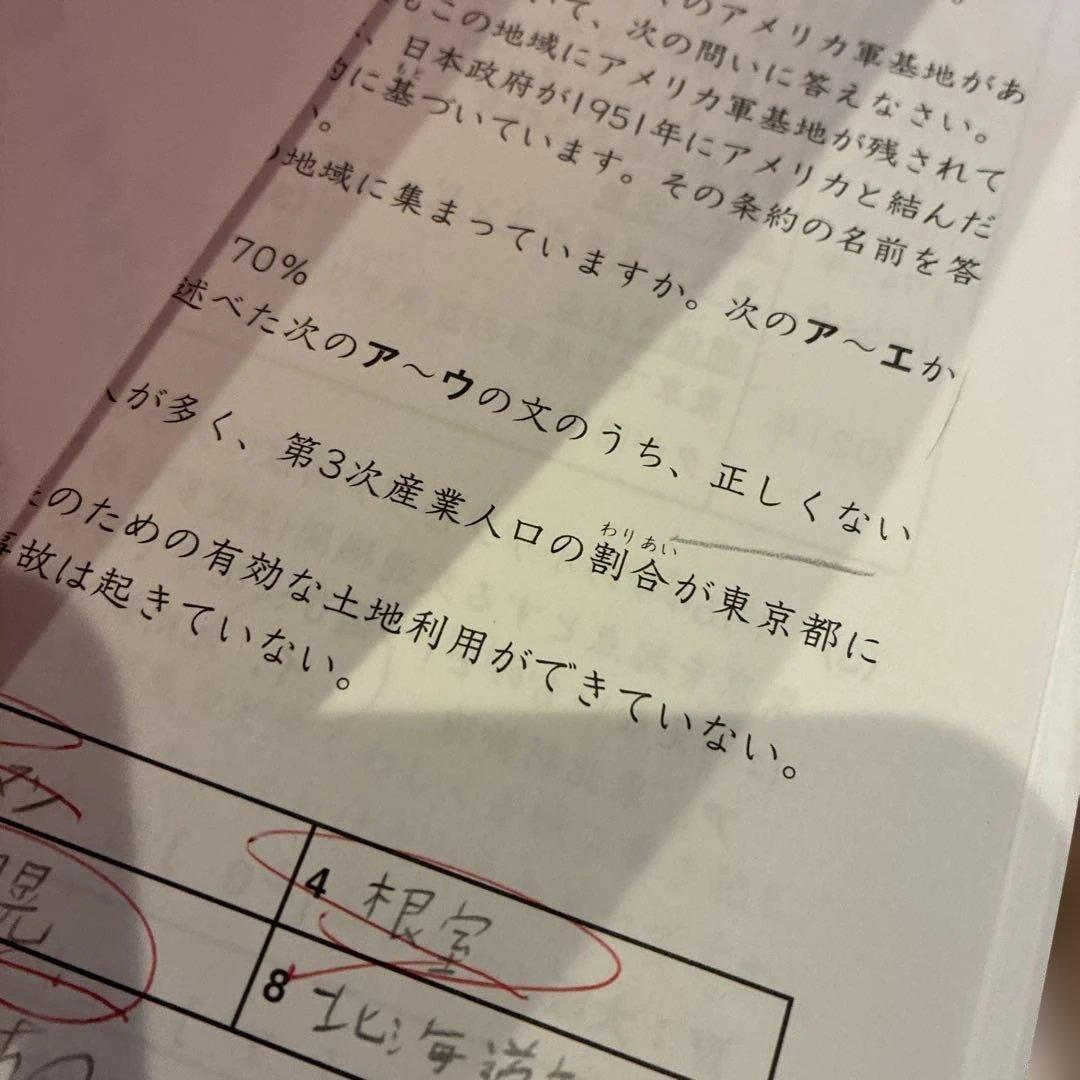 のアメリカ軍基地があ
て、次の問いに答えなさい。
もこの地域にアメリカ軍基地が残されて
、日本政府が1951年にアメリカと結んだ
的に基づいています。その条約の名前を答
もと
い。
地域に集まっていますか。次のア～エか
70%
述べた次のア～ウの文のうち、正しくない
が多く、第3次産業人口の割合が東京都に
わりあい
のための有効な土地利用ができていない。
事故は起きていない。
4 根室
8 北海道